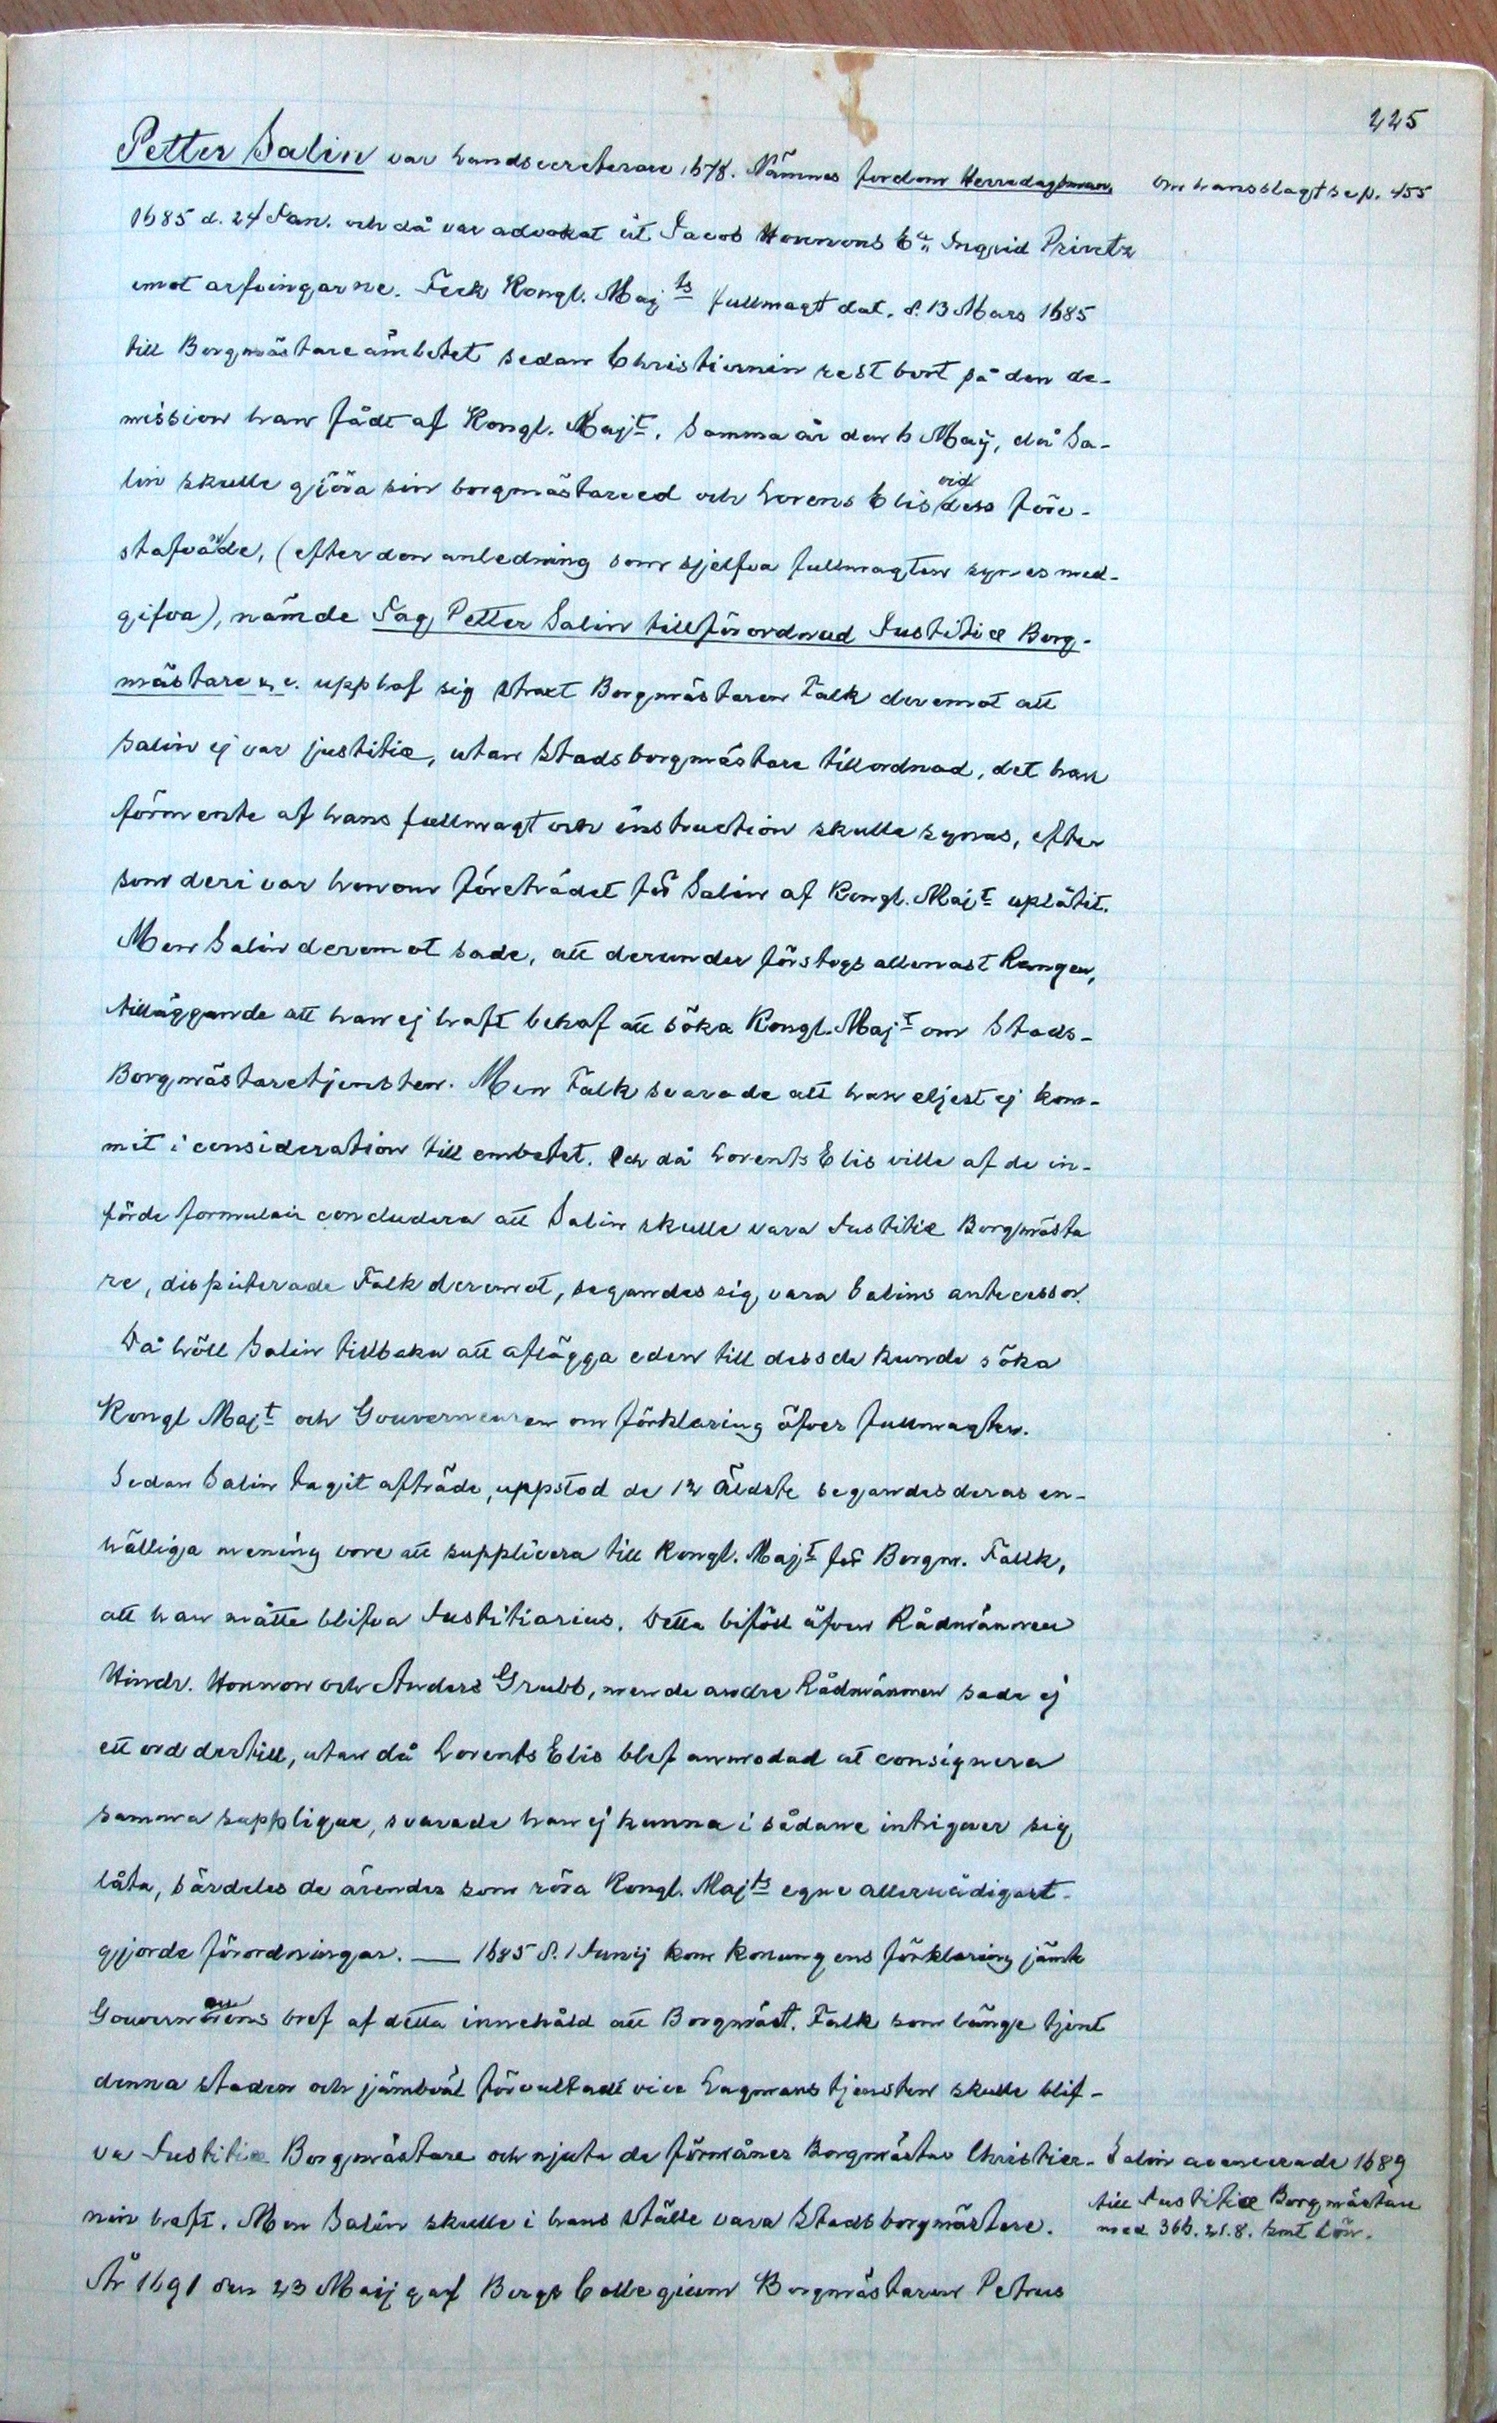 225
Petter Salin var Landssecreterare 1678. Nämnes fordom Herredagsman, om hans slägt se p. 455
1685 d. 24 Jan. och då var advokat åt Jacob Honnons Ea. Ingrid Prinetz
emot arfvingarne. Feck Kongl. Maj ts fullmagt dat. d. 13 Mars 1685
till Borgmästareämbetet sedan Christiernin rest bort på den de-
mission han fådt af Kongl. Majt. Samma år den 6 Maij, då Sa-
lin skulle gjöra sin borgmästareed och Lorens Elis vid dess före-
stafvade, (efter den anledning som sjelfva fullmagten synes med-
gifva), nämde Jag Petter Salin tillförordnad Justitiæ Borg-
mästare &c. upphof sig straxt Borgmästaren Falk deremot att
Salin ej var justitiæ, utan Stadsborgmästare tillordnad, det han
förmente af hans fullmagt och instruction skulle synas, efter
som deri var honom företrädet för Salin af Kongl. Majt uplåtit.
Men Salin deremot sade, att derunder förstogs allenast Rangen,
tilläggande att han ej haft behof att söka Kongl. Majt om Stads-
Borgmästaretjensten. Men Falk svarade att han eljest ej kom-
mit i consideration till embetet. Och då Lorents Elis ville af de in-
förde formulair concludera att Salin skulle vara Justitiæ Borgmästa
re, disputerade Falk deremot, segandes sig vara Salins antecessor.
Då höll Salin tillbaka att aflägga eden till dess de kunde söka
Kongl Majt och Gouverneuren om förklaring öfver fullmagten.
Sedan Salin tagit afträde, uppstod de 12 Äldste segandes deras en-
hälliga mening vore att supplicera till Kongl. Majt för Borgm. Falk,
att han måtte blifva Justitiarius. Detta biföll äfven Rådmännen
Hindr. Honnon och Anders Grubb, men de andre Rådmännen sade ej
ett ord dertill, utan då Lorents Elis blef anmodad at consignera
samma supplique, svarade han ej kunna i sådane intriguer sig
låta, särdeles de ärender som röra Kongl. Majts egne allernådigast
gjjorde förordningar. — 1685 d. 1 Junij kom konungens förklaring jämte
Gouverneurens bref af detta innehåld att Borgmäst. Falk som länge tjent
denna staden och jämbväl förvaltadt vice Lagmanstjensten skulle blif-
va Justitiæ Borgmästare och njuta de förmåner Borgmästar Christier-
nin haft. Men Salin skulle i hans ställe vara Stadsborgmästare.
År 1691 den 23 Maij gaf Bergs Collegium Borgmästaren Petrus
Salin avancerade 1689
till Justitiæ Borgmästare
med 366. 21. 8. smt lön.